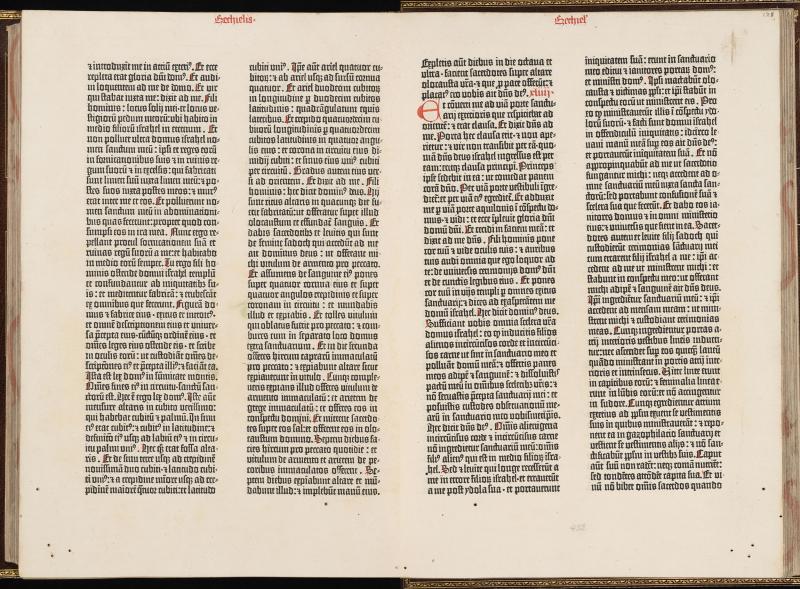 Ezechielis.
Ezechiel'
⁊ introduxit me in atriū exteri⁹. Et ecce
repleta erat gloria dn̄i dom⁹. Et audi-
vi loquentem ad me de domo. Et vir
qui stabat iuxta me: dixit ad me. Fili
hominis: locus solij mei et locus ve-
stigiorū pedum meorū: ubi habito in
medio filiorū israhel in eternum. Et
non polluēt ultra domus israhel no-
men sanctum meū: ipsi et reges eorū
in fornicationibus suis ⁊ in ruinis re-
gum suorū ⁊ in excelsis: qui fabricati
sunt limen suū iuxta limen meū: ⁊ po-
stes suos iuxta postes meos: ⁊ mur⁹
erat inter me et eos. Et polluerunt no-
men sanctum meū in abominationi-
bus quas fecerunt: propter quod con-
sumpsi eos in ira mea. Nunc ergo re-
pellant procul fornicationem suā et
ruinas regū suorū a me: et habitabo
in medio eorū semper. Tu ergo fili ho-
minis ostende domui israhel templū
et confundantur ab iniquitatib⁹ su-
is: et metiantur fabricā: ⁊ erubescāt
ex omnibus que fecerunt. Figurā do-
mus ⁊ fabrice eius: exitus et introit⁹
et omnē descriptionem eius et univer-
sa p̄cepta eius: cūctūq; ordinē eius: et
omnes leges eius ostende eis: et scribe
in oculis eorū: ut custodiāt om̄es de-
scriptiones ei⁹ et p̄cepta illi⁹: ⁊ faciāt ea.
Ista est lex dom⁹ in summitate montis.
Om̄es fines ei⁹ in circuitu: sanctū san-
ctorū est. Hec ē ergo lex dom⁹. Iste aūt
mensure altaris in cubito verissimo:
qui habebat cubitū ⁊ palmū. In sinu
ei⁹ erat cubit⁹: ⁊ cubit⁹ in latitudine: ⁊
definitio ei⁹ usq; ad labiū ei⁹ ⁊ in circu-
itu palm⁹ un⁹. Hec q̄q; erat fossa alta-
ris. Et de sinu terre usq; ad crepidinē
novissimā duo cubiti: ⁊ latitudo cubi-
ti uni⁹: ⁊ a crepidine mīore usq; ad cre-
pidinē maiorē q̄tuor cubiti: et latitudo
cubiti uni⁹. Ip̄e aūt ariel quatuor cu-
bitorū: ⁊ ab ariel usq; ad sursū cornua
quatuor. Et ariel duodecim cubitorū
in longitudine p duodecim cubitos
latitudinis: quadrāgulatum equis
lateribus. Et crepido quatuordecim cu-
bitorū longitudinis p quatuordecim
cubitos latitudinis in quatuor angu-
lis eius: et corona in circuitu eius di-
midij cubiti: et sinus eius uni⁹ cubiti
per circuitū. Gradus autem eius ver-
si ad orientem. Et dixit ad me. Fili
hominis: hec dicit domin⁹ deus. Hij
sunt ritus altaris in quacunq; die fu-
erit fabricatū: ut offeratur super illud
olocaustum et effundat̄ sanguis. Et
dabis sacerdotib⁹ et levitis qui sunt
de semine sadoch qui accedūt ad me
ait dominus deus: ut offerant mi-
chi vitulum de armento pro peccato.
Et assumens de sanguine ei⁹ pones
super quatuor cornua eius et super
quatuor angulos crepidinis et super
coronam in circuitu: et mundabis
illud et expiabis. Et tolles vitulum
qui oblatus fuerit pro peccato: ⁊ com-
bures eum in separato loco domus
extra sanctuarium. Et in die secunda
offeres hircum caprarū immaculatū
pro peccato: ⁊ expiabunt altare sicut
expiaverunt in vitulo. Cunq; comple-
veris expians illud offeres vitulum de
armento immaculatū: et arietem de
grege immaculatū: et offeres eos in
conspectu domini. Et mittent sacerdo-
tes super eos sal: et offerent eos in olo-
caustum domino. Septem diebus fa-
cies hircum pro peccato quotidie: et
vitulum de armento et arietem de pe-
coribus immaculatos offerent. Se-
ptem diebus expiabunt altare et mū-
dabunt illud: ⁊ implebūt manū eius.
Expletis aūt diebus in die octava et
ultra: facient sacerdotes super altare
olocausta vr̄a ⁊ que p pace offerūt: ⁊
placat⁹ ero vobis ait dn̄s de⁹. xliiij.
Et cōvertit me ad viā porte sanctu-
arij exterioris que respiciebat ad
orientē: ⁊ erat clausa. Et dixit dn̄s ad
me. Porta hec clausa erit: ⁊ non ape-
rietur: ⁊ vir non transibit per eā: quo-
niā dn̄s deus israhel ingressus est per
eam: eritq; clausa principi. Princeps
ipse sedebit in ea: ut comedat panem
corā dn̄o. Per viā porte vestibuli īgre-
diet̄: et per viā ei⁹ egrediet̄. Et adduxit
me p viā porte aquilonis ī cōspectu do-
mus: ⁊ vidi: et ecce īplevit gloria dn̄i
domū dn̄i. Et cecidi in faciem meā: et
dixit ad me dn̄s. Fili hominis pone
cor tuū ⁊ vide oculis tuis: ⁊ auribus
tuis audi omnia que ego loquor ad
te: de universis cerimonijs dom⁹ dn̄i
et de cunctis legibus eius. Et pones
cor tuū in vijs templi p omnes exitus
sanctuarij: ⁊ dices ad exasperātem me
domū israhel. Hec dicit domin⁹ deus.
Sufficiant vobis omnia scelera vr̄a
domus israhel: eo q̄ inducitis filios
alienos incircūcisos corde et incircūci-
sos carne ut sint in sanctuario meo et
polluāt domū meā: ⁊ offertis panes
meos adipē ⁊ sanguinē: ⁊ dissolvistis
pactū meū in omibus sceleribus vr̄is: ⁊
nō servastis p̄cepta sanctuarij mei: et
posuistis custodes observationū me-
arū in sanctuario meo vobismetipsis.
Hec dicit dn̄s de⁹. Om̄is alienigena
incircūcisus corde ⁊ incircūcisus carne
nō ingredietur sanctuariū meū: om̄is
fili⁹ alien⁹ qui est in medio filiorū isra-
hel. Sed ⁊ levite qui longe recesserūt a
me in errore filiorū israhel: et erraverūt
a me post ydola sua: et portaverunt
iniquitatem suā: erunt in sanctuario
meo editui ⁊ ianitores portarū dom⁹:
et ministri dom⁹. Ip̄si mactabūt olo-
causta ⁊ victimas pp̄li: et ip̄i stabūt in
conspectu eorū ut ministrent eis. Pro
eo q̄ ministraverūt illis ī cōspectu ydo-
lorū suorū: ⁊ facti sunt domui israhel
in offendiculū iniquitatis: idcirco le-
vavi manū meā sup eos ait dn̄s de⁹:
et portaverūt iniquitatem suā. Et nō
appropinquabūt ad me ut sacerdotio
fungantur michi: neq; accedent ad o-
mne sanctuariū meū iuxta sancta san-
ctorū: sed portabunt confusionē suā ⁊
scelera sua que fecerūt. Et dabo eos ia-
nitores domus ⁊ in omni ministerio
eius: ⁊ universis que fient in ea. Sacer-
dotes autem et levite filij sadoch qui
custodierūt cerimonias sāctuarij mei
cum errarent filij israhel a me: ip̄i ac-
cedent ad me ut ministrent michi: et
stabunt in conspectu meo: ut offerant
michi adipē ⁊ sanguinē ait dn̄s deus.
Ip̄i ingrediētur sanctuariū meū: ⁊ ip̄i
accedent ad mensam meam: ut mini-
strent michi ⁊ custodiant cerimonias
meas. Cunq; ingredientur portas a-
trij interioris vestibus lineis induen-
tur: nec ascendet sup eos quicq̄ laneū
quādo ministrant in portis atrij inte-
rioris et intrinsecus. Vitte linee erunt
in capitibus eorū: ⁊ feminalia linea e-
runt in lūbis eorū: et nō accingentur
in sudore. Cunq; egredientur atrium
exterius ad pp̄lm exuent se vestimentis
suis in quibus ministraverāt: ⁊ repo-
nent ea in gazophilacio sanctuarij et
vestient se vestimentis alijs: ⁊ nō san-
ctificabūt pp̄lm in vestib⁹ suis. Caput
aūt suū non radēt: neq; comā nutriēt:
sed tondētes attōdēt capita sua. Et vi-
nū nō bibet om̄is sacerdos quando